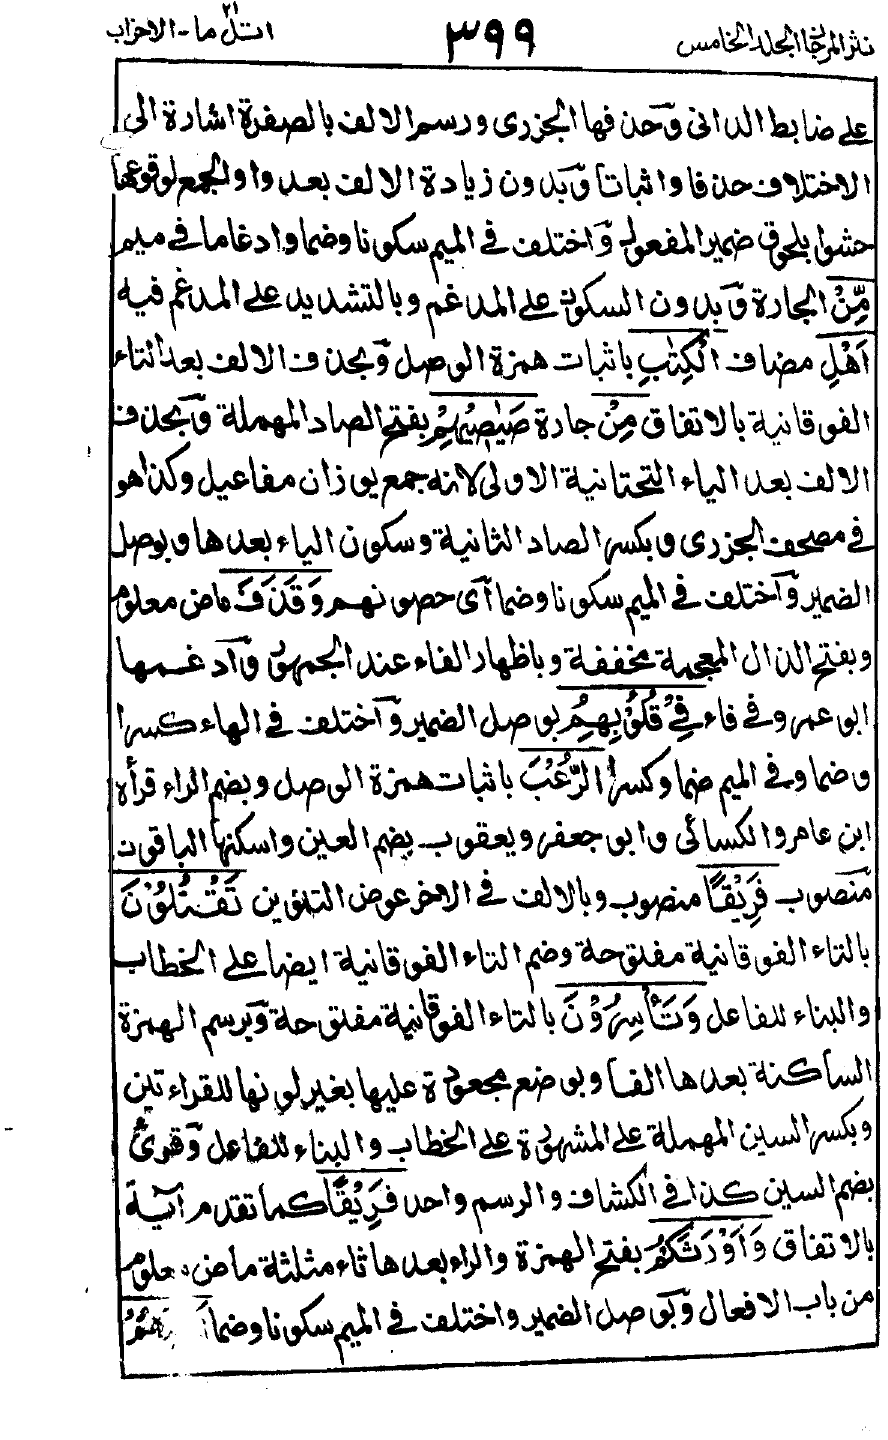 نثر المرجان المجلد الخامس
٣٩٩
اتل ما - الاحزاب ٢١
على ضابط الدانى وحذفها الجزرى ورسم الالف بالصفرة اشارة الى
الاختلاف حذفا واثباتا وبدون زيادة الالف بعد واو الجمع لوقوعها
حشوا بلحوق ضمير المفعول واختلف فى الميم سكونا وضما وادغاما فى ميم
مِّنْ الجارة وبدون السكون على المدغم وبالتشديد على المدغم فيه
اَهْلِ مضاف الْكِتٰبِ باثبات همزة الوصل وبحذف الالف بعد التاء
الفوقانية بالاتفاق مِنْ جارة صَيَاصِيْهِمْ بفتح الصاد المهملة وبحذف
الالف بعد الياء التحتانية الاولى لانه جمع يوزان مفاعيل وكذا هو
فى مصحف الجزرى وبكسر الصاد الثانية وسكون الياء بعدها وبوصل
الضمير واختلف فى الميم سكونا وضما اى حصونهم وَقَذَفَ ماض معلوم
وبفتح الذال المعجمة مخففة وباظهار الفاء عند الجمهور وادغمها
ابو عمرو فى فاء فِىْ قُلُوْبِهِمُ بوصل الضمير واختلف فى الهاء كسرا
وضما وفى الميم ضما وكسرا الرُّعْبَ باثبات همزة الوصل وبضم الراء قرأه
ابن عامر والكسائى وابو جعفر ويعقوب بضم العين واسكنها الباقون
منصوب فَرِيْقًا منصوب وبالالف فى الاخر عوض التنوين تَقْتُلُوْنَ
بالتاء الفوقانية مفتوحة وضم التاء الفوقانية ايضا على الخطاب
والبناء للفاعل وَتَأْسِرُوْنَ بالتاء الفوقانية مفتوحة وبرسم الهمزة
الساكنة بعدها الفا وبوضع مجعودة عليها بغير لونها للقراءتين
وبكسر السين المهملة على المشهورة على الخطاب والبناء للفاعل وقرئ
بضم السين كذا فى الكشاف والرسم واحد فَرِيْقًا كما تقدم آية
بالاتفاق وَاَوْرَثَكُمْ بفتح الهمزة والراء بعدها ثاء مثلثة ماض معلوم
من باب الافعال وبوصل الضمير واختلف فى الميم سكونا وضما